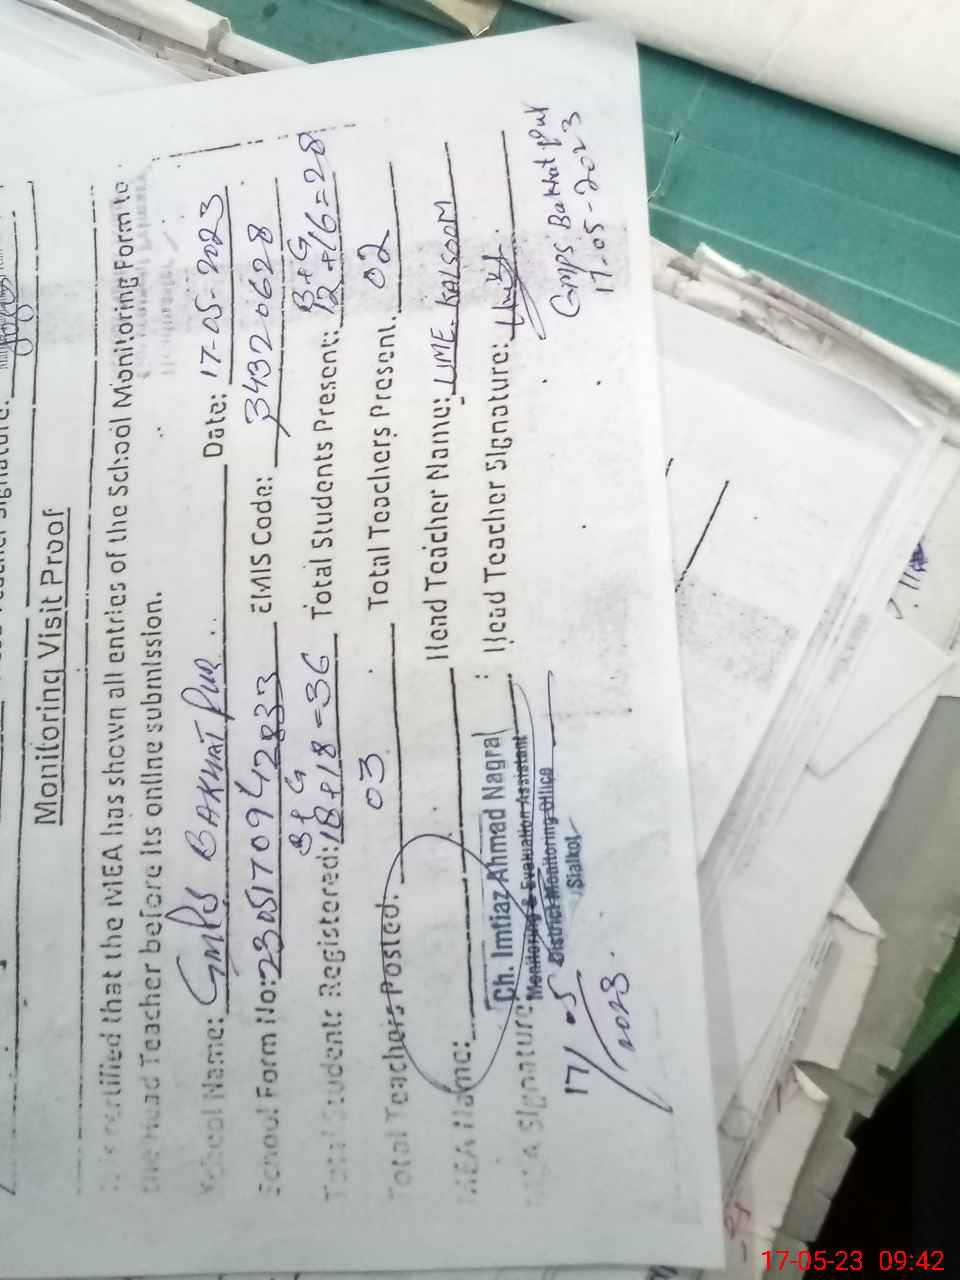 Monitoring Visit Proof
It is certified that the MEA has shown all entries of the School Monitoring Form to
the Head Teacher before its online submission.
School Name: GMPS BAKHAT PUR Date: 17-05-2023
School Form No: 2305170942833 EMIS Code: 34320628
B + G B+G
Total Students Registered: 18+18=36 Total Students Present: 12+16=28
Total Teachers Posted: 03 Total Teachers Present. 02
MEA Name: Head Teacher Name: UME KALSOOM
MEA Signature: Head Teacher Signature:
Ch. Imtiaz Ahmad Nagra
Monitoring & Evaluation Assistant
District Monitoring Office
Sialkot
17/05/2023.
GMPS Bakhat Pur
17-05-2023
17-05-23 09:42